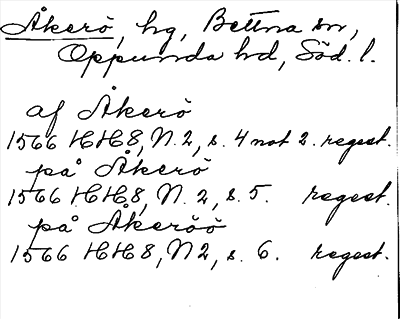 Åkerö, hg, Bettna sn,
Oppunda hd, Söd. l.
af Åkerö
1566 HH8, N. 2, s. 4 not 2. regest.
på Åkerö
1566 HH8, N. 2, s. 5. regest.
på Åkeröö
1566 HH8, N2, s. 6. regest.